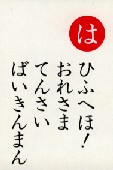 は
ひふへほ！
おれさま
てんさい
ばいきんまん